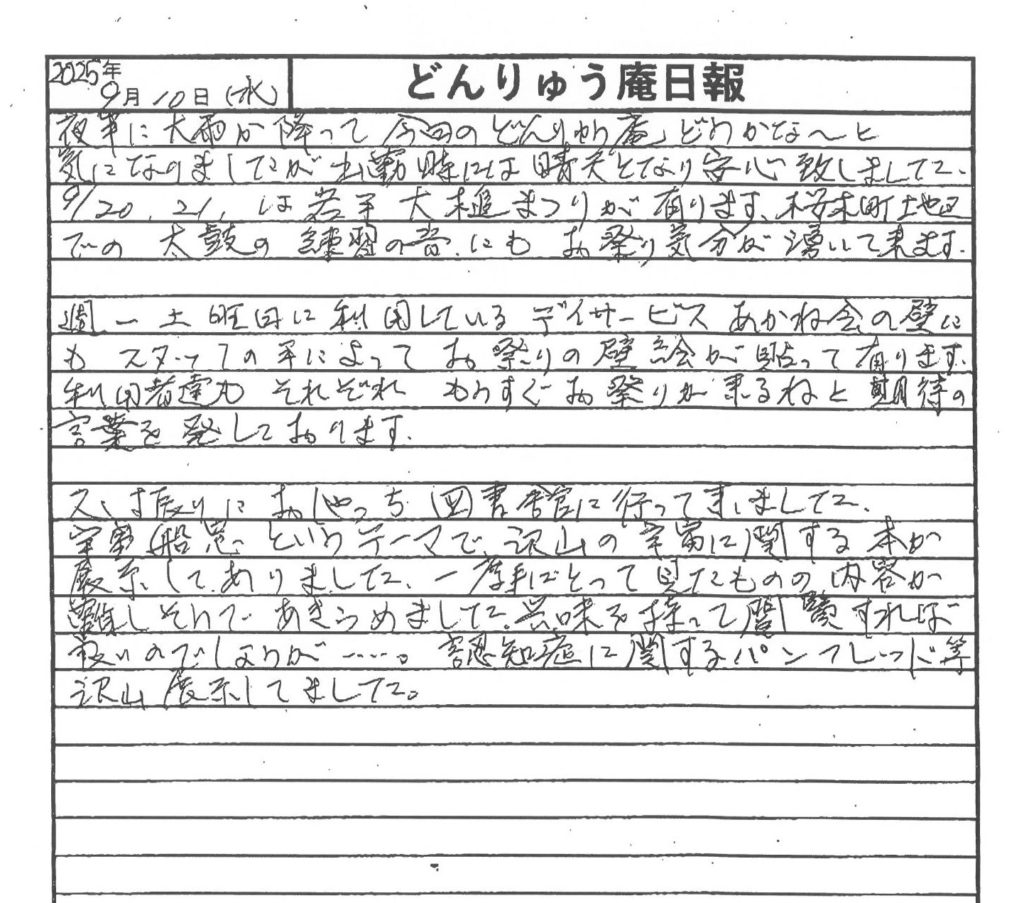 2025年
9月10日(水)
どんりゅう庵日報
夜半に大雨が降って今回のどんりゅう庵、どうかな〜と
気になりましたが出勤時には晴天となり安心致しました。
9/20、21、は岩手大槌まつりが有ります。桜木町地区
での太鼓の練習の音にもお祭り気分が湧いて来ます。
週一土曜日に利用しているデイサービスあかね会の壁に
もスタッフの手によってお祭りの壁絵が貼って有ります。
利用者達もそれぞれもうすぐお祭りが来るねと期待の
言葉を発しております。
久し振りにおしゃっち図書館に行ってきいました。
宇宙船 というテーマで、沢山の宇宙に関する本が
展示してありました。一度手にとって見たものの内容が
難しそうであきらめました。興味を持って閲覧すれば
良いのでしょうが……。認知症に関するパンフレット等
沢山展示してました。